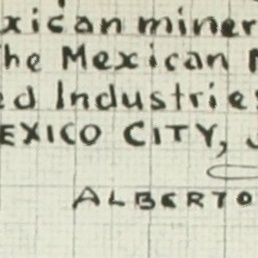 xican miner
he Mexican
ed Industries
EXICO CITY,
ALBERTO